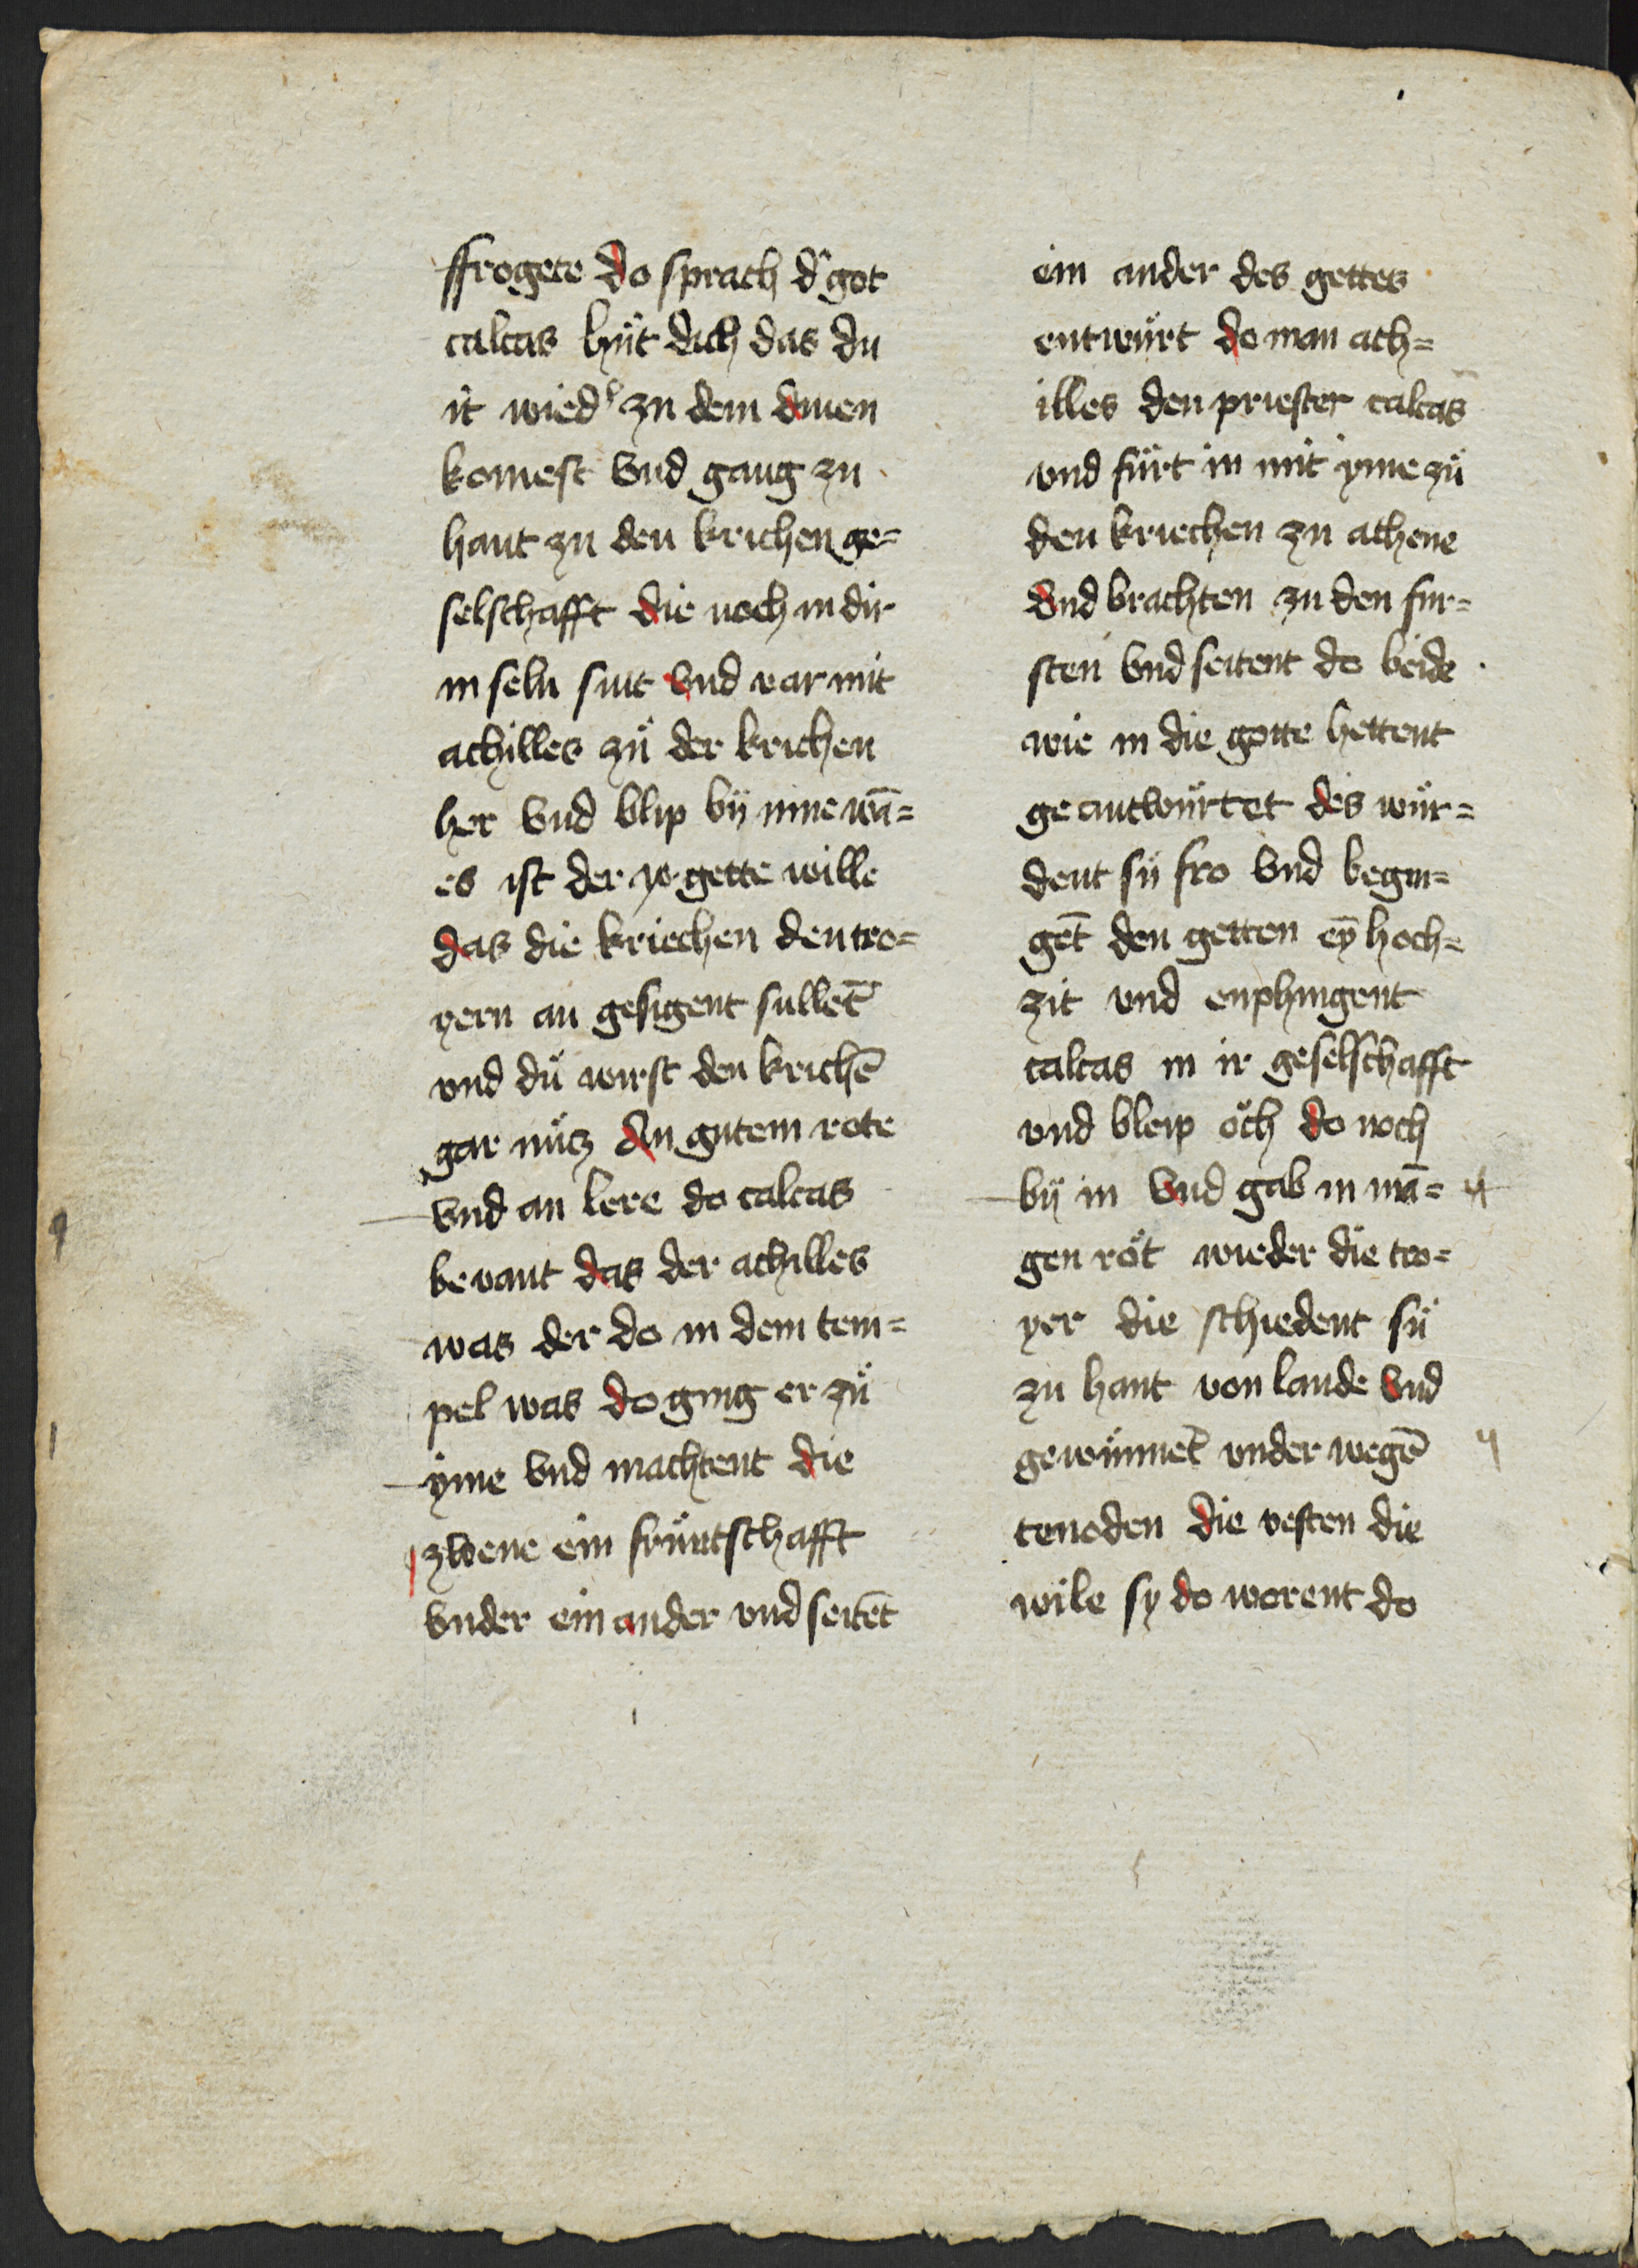 ffrogete do sprach d' got
calcas hüt dich das du
it wied' zu dem dinen
komest vnd gang zu
hant zu den krichen ge=
selschafft die noch in dir
inseln sint vnd var mit
achilles zuͤ der krichen
her vnd blip bÿ inne wā=
es ist der gette wille
das die kriechen den tro=
yern an gesigent sullet̄
vnd duͤ wirst den krichē
gar nütz an gutem rote
vnd an lere do calcas
bevant das der achilles
was der do in dem tem=
pel was do ging er zuͤ
ÿme vnd machtent die
zwene ein früntschafft
vnder ein ander vnd seitēt
ein ander des gettes
entwürt do man ach=
illes den priester calcas
vnd fürt in mit yme zuͤ
den kriechen zu athene
vnd brachten zu den für=
sten vnd seitent do beide
wie in die gotte hettent
geantwürtet des wur=
dent sü fro vnd begin=
gēt den getten eȳ hoch=
zit vnd enphingent
calcas in ir geselschafft
vnd bleip öch do noch
bÿ in vnd gab in mā=
gen röt wieder die tro=
yer die schiedent sü
zu hant von lande vnd
gewünnet̄ vnder wegē
tenoden die vesten die
wile sy do worent do